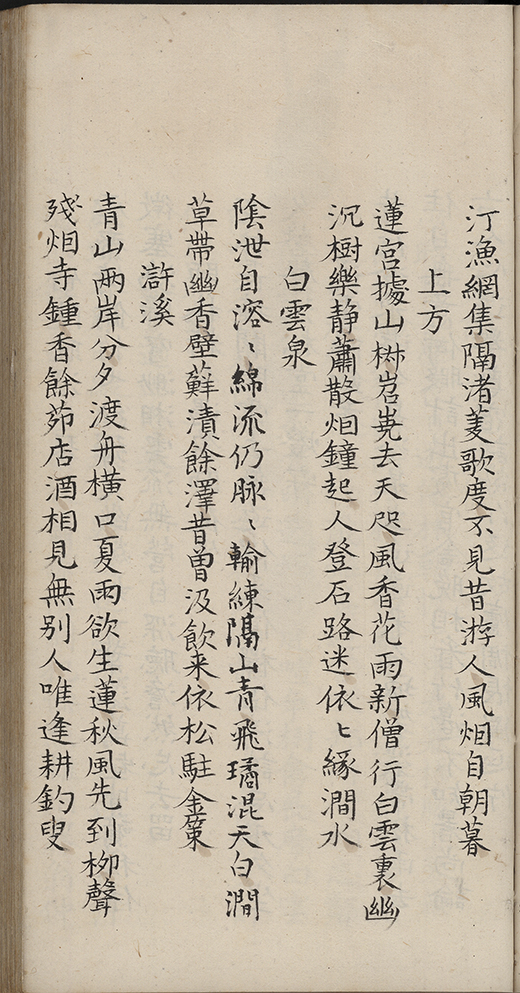 汀漁網集隔渚菱歌度不見昔游人風烟自朝暮
上方
蓮宮據山椒岧嶤去天咫風香花雨新僧行白雲裏幽
沉樹樂静蕭散烟鐘起人登石路迷依〻緣澗水
白雲泉
陰泄自溶〻綿流仍脉〻輸練隔山青飛璚混天白澗
草帶幽香壁蘚漬餘澤昔曽汲飲来依松駐金策
滸溪
青山兩岸分夕渡舟橫口夏雨欲生蓮秋風先到栁聲
殘烟寺鍾香餘茆店酒相見無別人唯逢耕釣叟